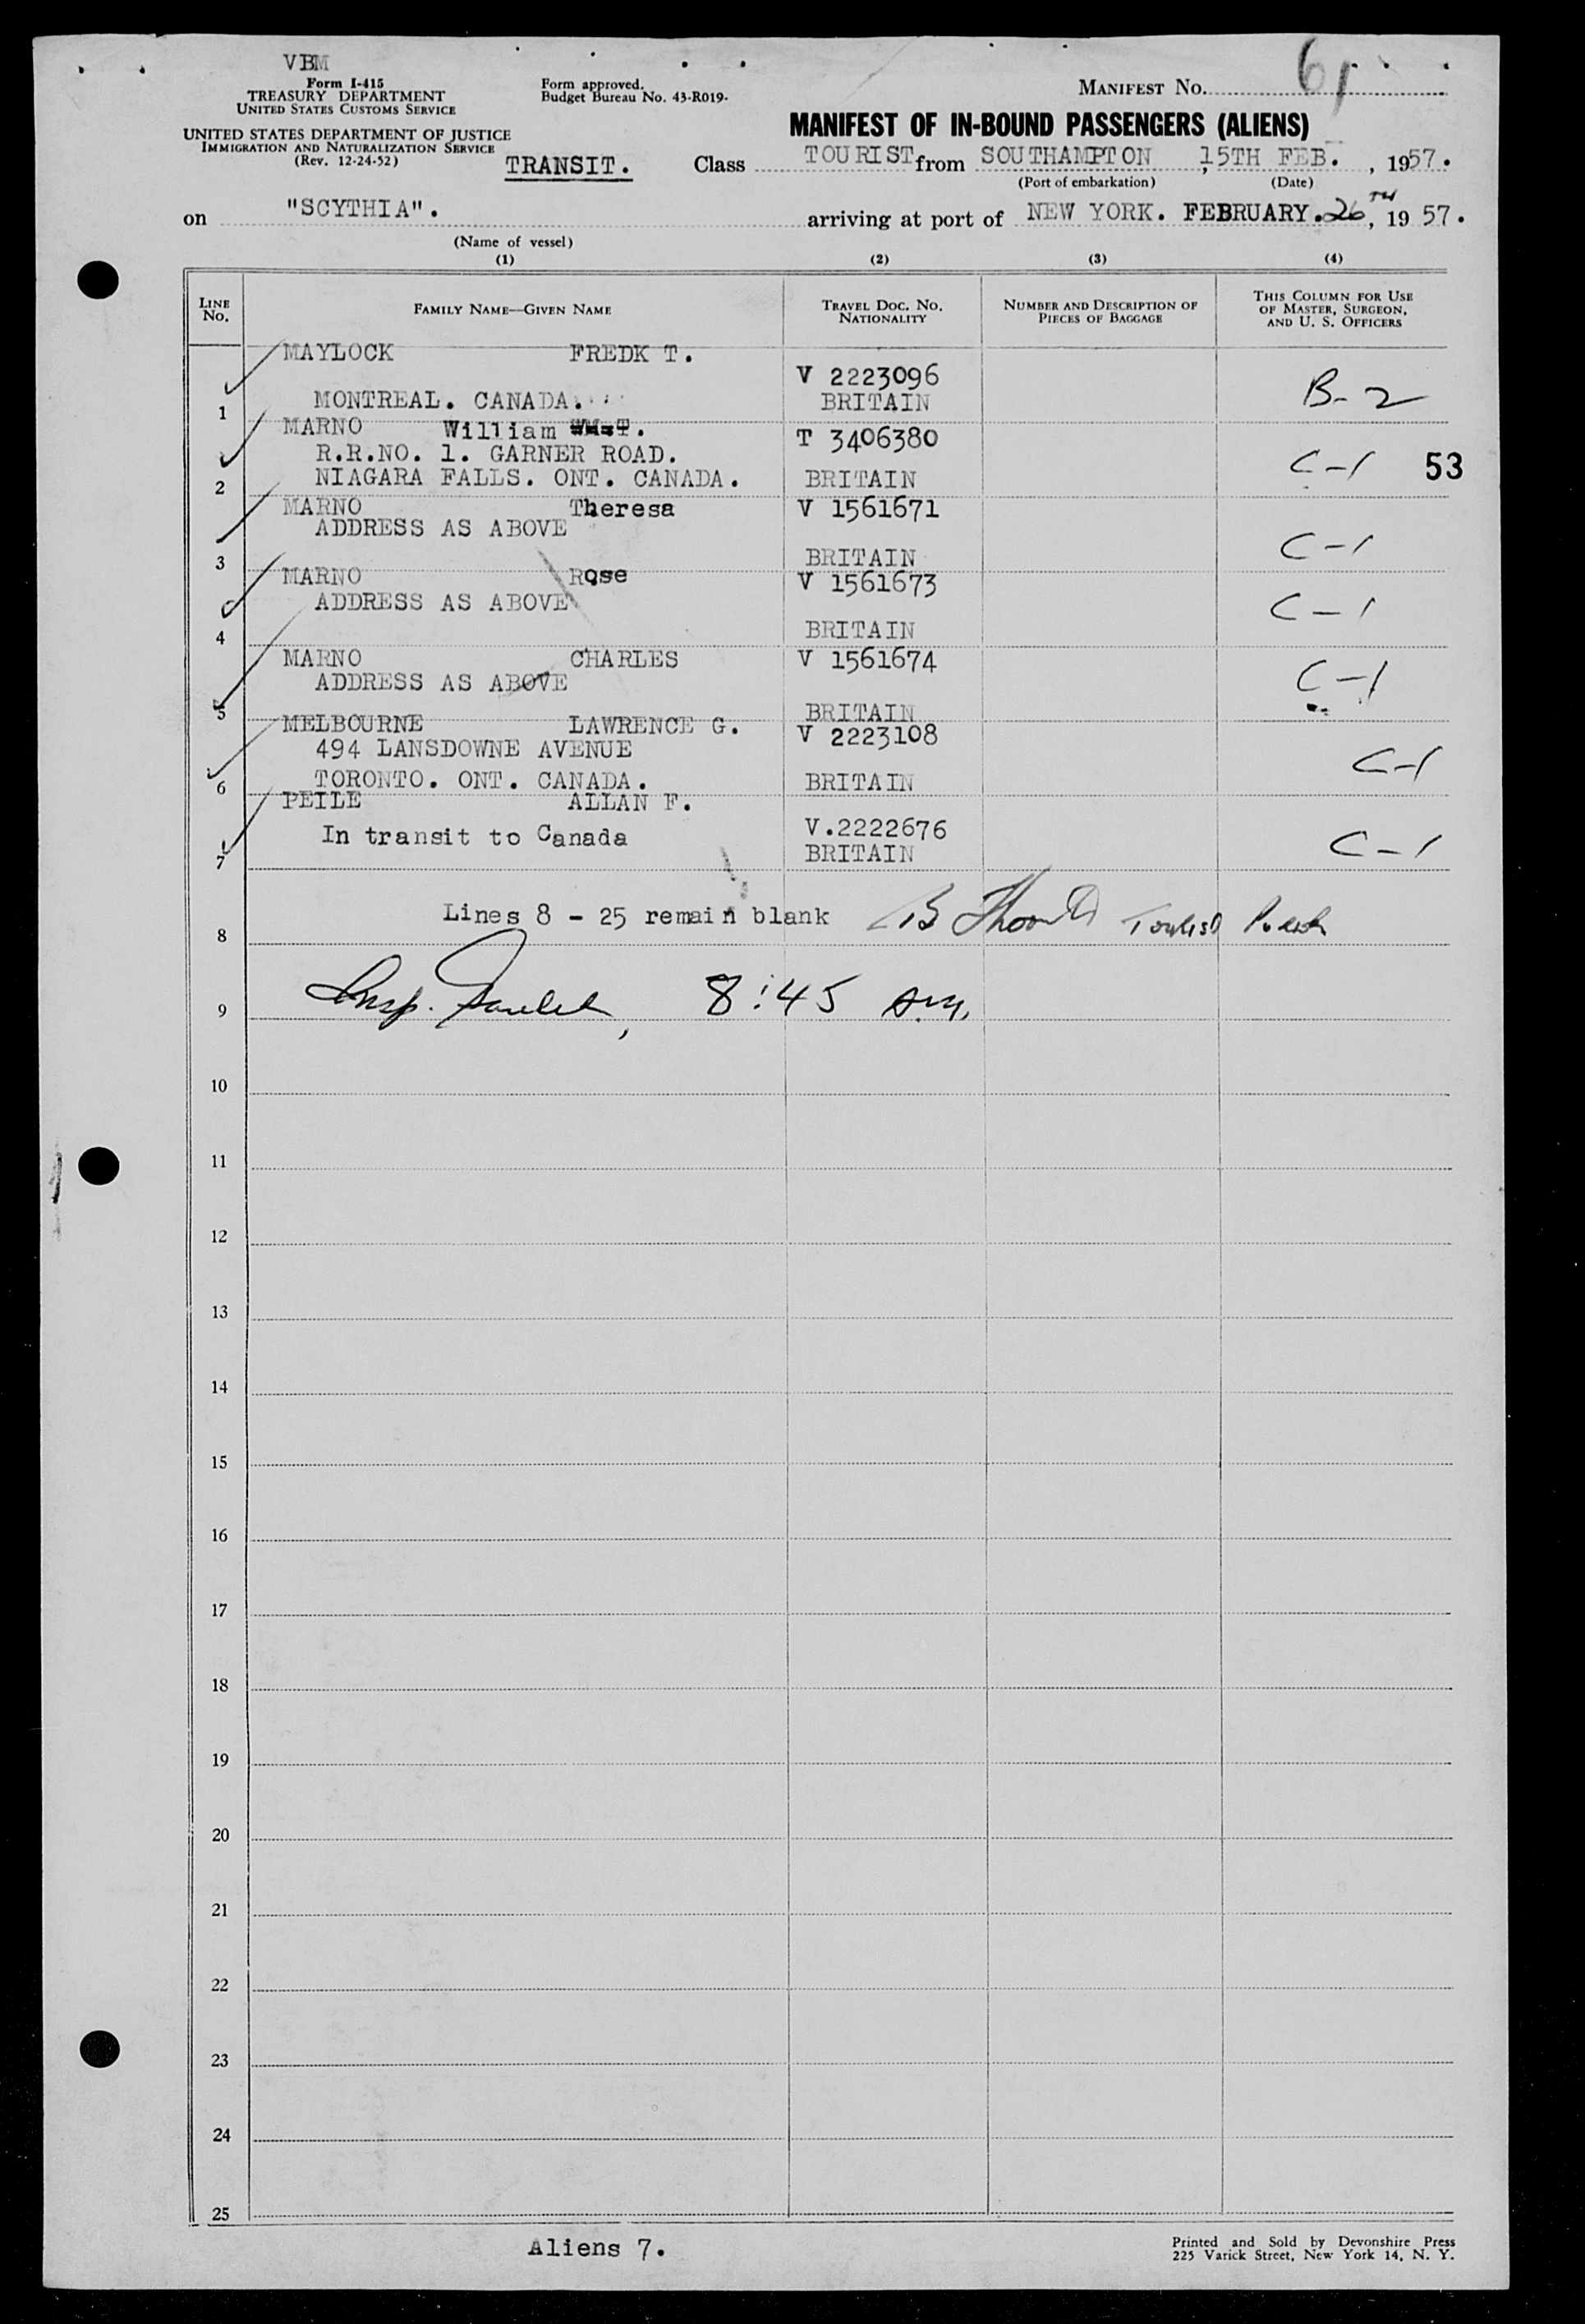 VBM
Form I-415
TREASURY DEPARTMENT
UNITED STATES CUSTOMS SERVICE
Form approved.
Budget Bureau No. 43-R019-
MANIFEST No. 61
UNITED STATES DEPARTMENT OF JUSTICE
IMMIGRATION AND NATURALIZATION SERVICE
(Rev. 12-24-52)
MANIFEST OF IN-BOUND PASSENGERS (ALIENS)
TRANSIT. Class TOURIST from SOUTHAMPTON, 15TH FEB. , 1957.
(Port of embarkation) (Date)
on "SCYTHIA". arriving at port of NEW YORK. FEBRUARY. 26TH, 1957.
(Name of vessel)
(1) (2) (3) (4)
LINE No. FAMILY NAME—GIVEN NAME TRAVEL DOC. No. NATIONALITY NUMBER AND DESCRIPTION OF PIECES OF BAGGAGE THIS COLUMN FOR USE OF MASTER, SURGEON, AND U. S. OFFICERS
MAYLOCK FREDK T.
V 2223096
1 MONTREAL. CANADA. BRITAIN B-2
MARNO William T. T 3406380
R.R.NO. 1. GARNER ROAD. C-1 53
2 NIAGARA FALLS. ONT. CANADA. BRITAIN
MARNO Theresa V 1561671
ADDRESS AS ABOVE
3 BRITAIN C-1
MARNO Rose V 1561673
ADDRESS AS ABOVE C-1
4 BRITAIN
MARNO CHARLES V 1561674
ADDRESS AS ABOVE C-1
5 BRITAIN
MELBOURNE LAWRENCE G. V 2223108
494 LANSDOWNE AVENUE C-1
6 TORONTO. ONT. CANADA. BRITAIN
PEILE ALLAN F.
In transit to Canada V.2222676
7 BRITAIN C-1
Lines 8 - 25 remain blank
8
9 Insp. 8:45 a.m.
10
11
12
13
14
15
16
17
18
19
20
21
22
23
24
25
Aliens 7.
Printed and Sold by Devonshire Press
225 Varick Street, New York 14, N. Y.